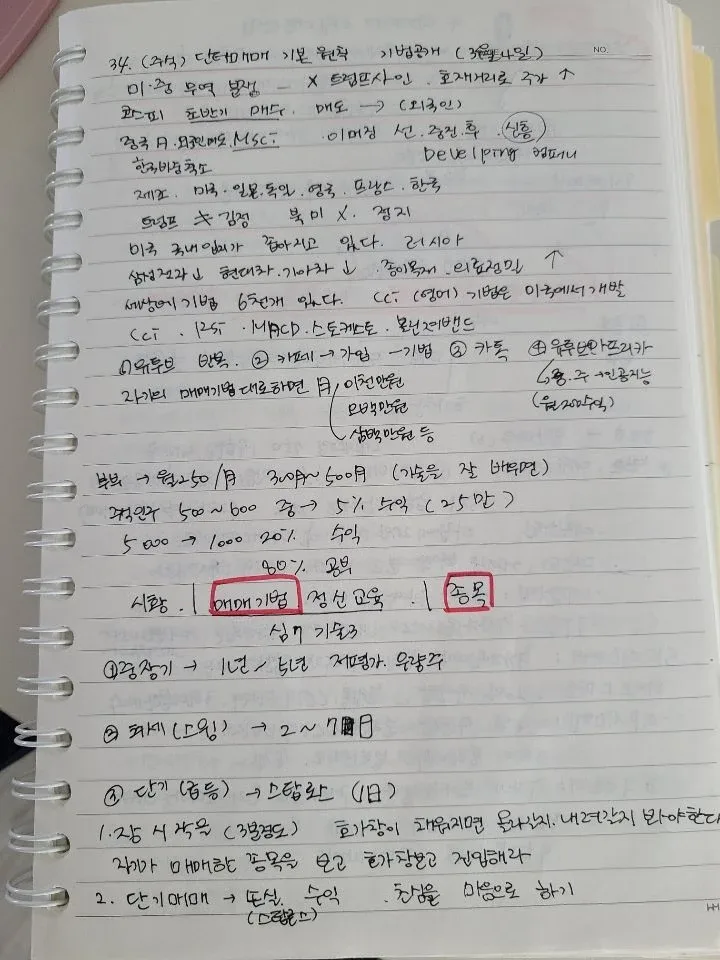 34. (주식) 단타매매 기본 원칙 기법공개 (3월 4일)
NO.
미·중 무역 분쟁 - X 트럼프사인 . 호재거리로 주가 ↑
코스피 초반기 매수. 매도 → (외국인)
중국 A. 외국인매도. MSCI 이머징 선. 중진. 후. 신흥
한국비중축소 Develping 컴퍼니
제조. 미국·일본·독일·영국·프랑스·한국
트럼프 김정 북미 X. 정지
미국 국내입지가 좁아지고 있다. 러시아
삼성전자↓ 현대차·기아차↓ ·종이목재·의료정밀 ↑
세상에 기법 6천개 있다. CCI (영어) 기법은 미국에서 개발
CCI · RSI · MACD · 스토케스토 · 볼린져밴드
① 유튜브 반복. ② 카페→가입 -기법 ③ 카톡 ④ 유튜브아프리카
자기의 매매기법대로하면 月 이천만원 주→인공지능
오백만원 (월 200수익)
삼백만원 등
부부 → 월250/月 300만~500月 (기술을 잘 배우면)
500~600 중→ 5% 수익 (25만)
5000 → 1000 20% 수익
80% 공부
시황. | 매매기법 정신교육 . | 종목
심7 기술3
① 중장기 → 1년~5년 저평가. 우량주
② (스윙) → 2~7日
③ 단기 (급등) → 스탑로스 (1日)
1. 장 시작을 (3분정도) 호가창이 채워지면 올라갈지. 내려갈지 봐야한다
자기가 매매한 종목을 보고 호가창보고 진입해라
2. 단기매매 → 손실. 수익 . 초심을 마음으로 하기
(스탑로스)